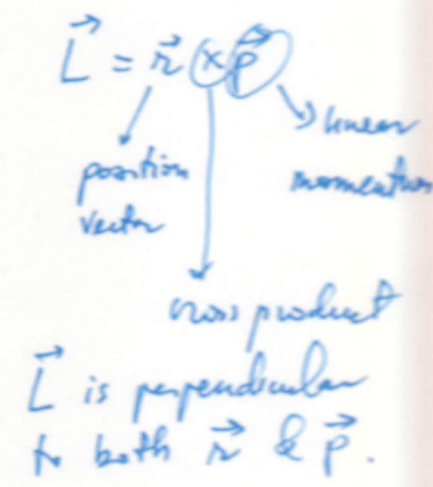 L⃗ = r⃗ × p⃗
position
vector
linear
momentum
cross product
L⃗ is perpendicular
to both r⃗ & p⃗.